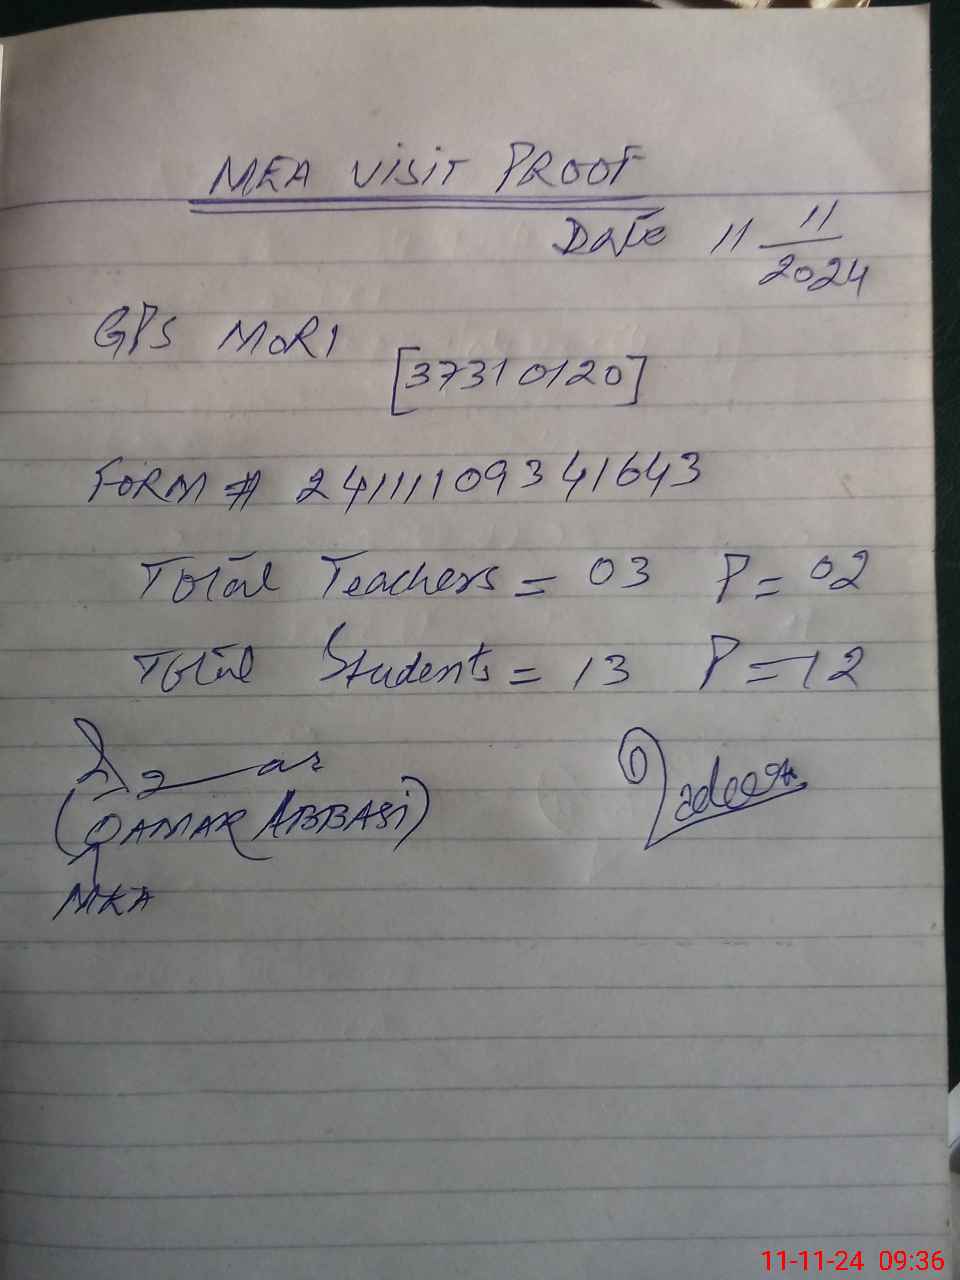 MEA VISIT PROOF
Date 11 11/2024
GPS MORI
[37310120]
FORM # 2411110934 1643
Total Teachers = 03 P = 02
Total Students = 13 P = 12
(QAMAR ABBASI)
MEA
11-11-24 09:36